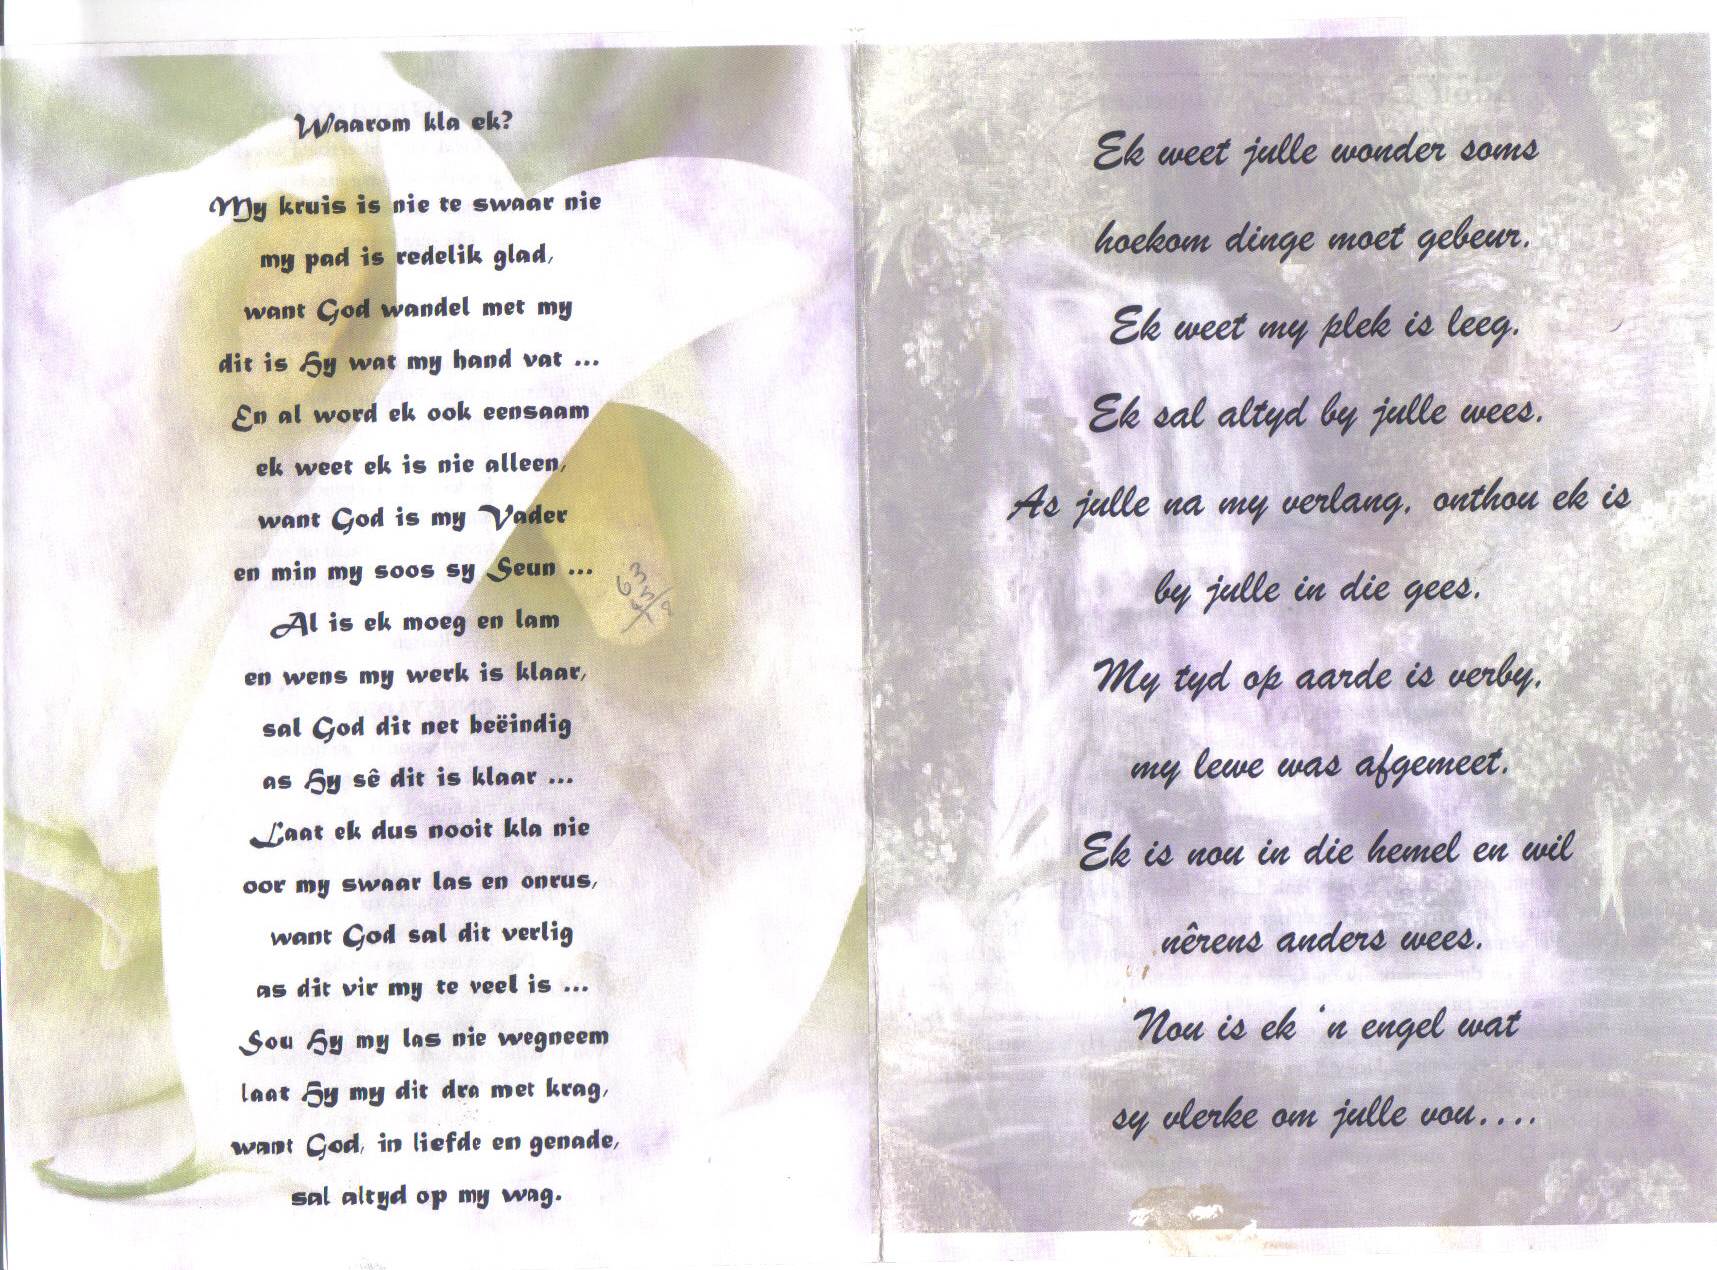 Waarom kla ek?
My kruis is nie te swaar nie
my pad is redelik glad,
want God wandel met my
dit is Hy wat my hand vat ...
En al word ek ook eensaam
ek weet ek is nie alleen,
want God is my Vader
en min my soos sy Seun ...
Al is ek moeg en lam
en wens my werk is klaar,
sal God dit net beëindig
as Hy sê dit is klaar ...
Laat ek dus nooit kla nie
oor my swaar las en onrus,
want God sal dit verlig
as dit vir my te veel is ...
Sou Hy my las nie wegneem
laat Hy my dit dra met krag,
want God, in liefde en genade,
sal altyd op my wag.
Ek weet julle wonder soms
hoekom dinge moet gebeur.
Ek weet my plek is leeg.
Ek sal altyd by julle wees.
As julle na my verlang, onthou ek is
by julle in die gees.
My tyd op aarde is verby,
my lewe was afgemeet.
Ek is nou in die hemel en wil
nêrens anders wees.
Nou is ek 'n engel wat
sy vlerke om julle vou....